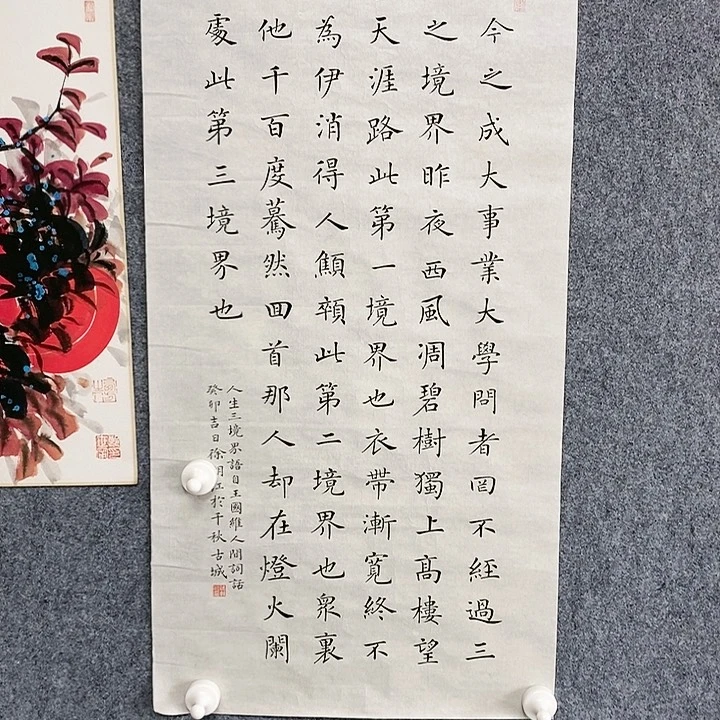 今之成大事業大學問者罔不經過三
之境界昨夜西風凋碧樹獨上高樓望
天涯路此第一境界也衣帶漸寬終不
為伊消得人顦顇此第二境界也眾裏
他千百度驀然回首那人却在燈火闌
處此第三境界也
人生三境界語自王國維人間詞話
癸卯吉日徐江於千秋古城